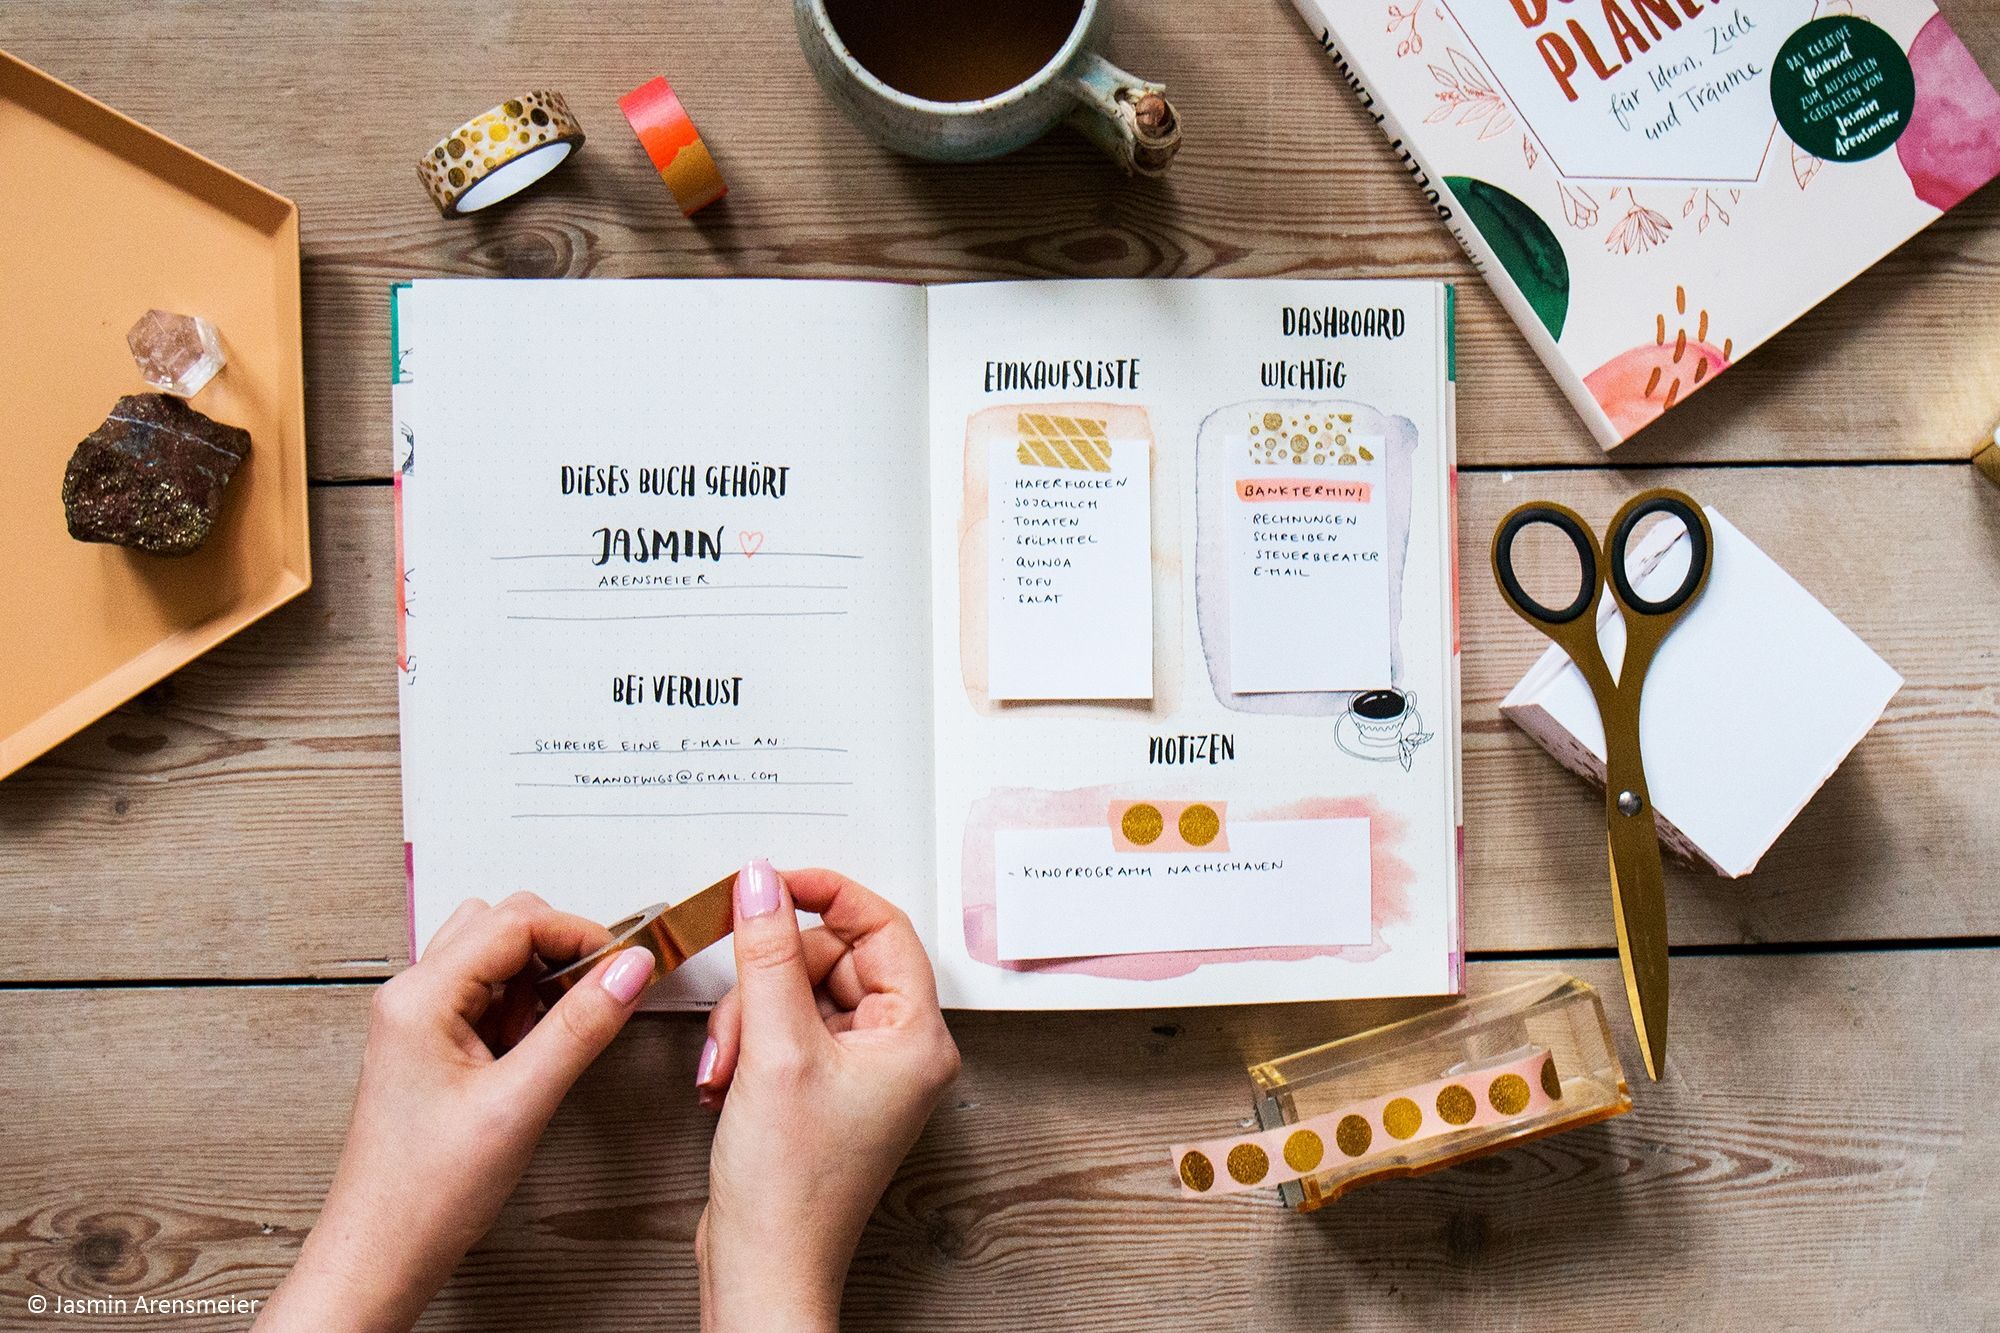 PLANE
für Ideen, Ziele
und Träume
DAS KREATIVE
Journal
ZUM AUSFÜLLEN
+ GESTALTEN VON
Jasmin
Arensmeier
BULLET PLANER
DIESES BUCH GEHÖRT
JASMIN
ARENSMEIER
BEI VERLUST
SCHREIBE EINE E-MAIL AN:
TEAANDTWIGS@GMAIL.COM
DASHBOARD
EINKAUFSLISTE
· HAFERFLOCKEN
· SOJAMILCH
· TOMATEN
· SPÜLMITTEL
· QUINOA
· TOFU
· SALAT
WICHTIG
BANKTERMIN!
· RECHNUNGEN
SCHREIBEN
· STEUERBERATER
E-MAIL
NOTIZEN
- KINOPROGRAMM NACHSCHAUEN
© Jasmin Arensmeier